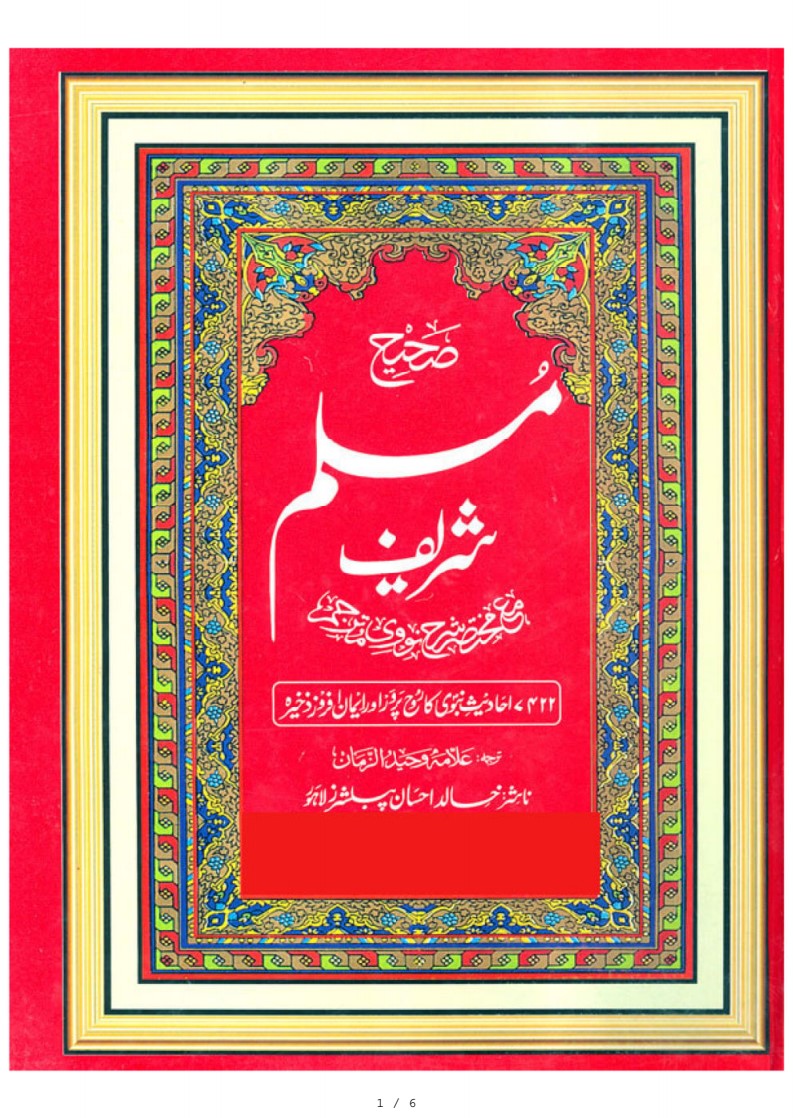 صحیح
مُسلم
شریف
مع مختصر شرح نووی مترجم
۷۴۲۲ احادیثِ نبوی کا روح پرور اور ایمان افروز ذخیرہ
ترجمہ: علامہ وحید الزمان
ناشر: خالد احسان پبلشرز لاہور
1 / 6